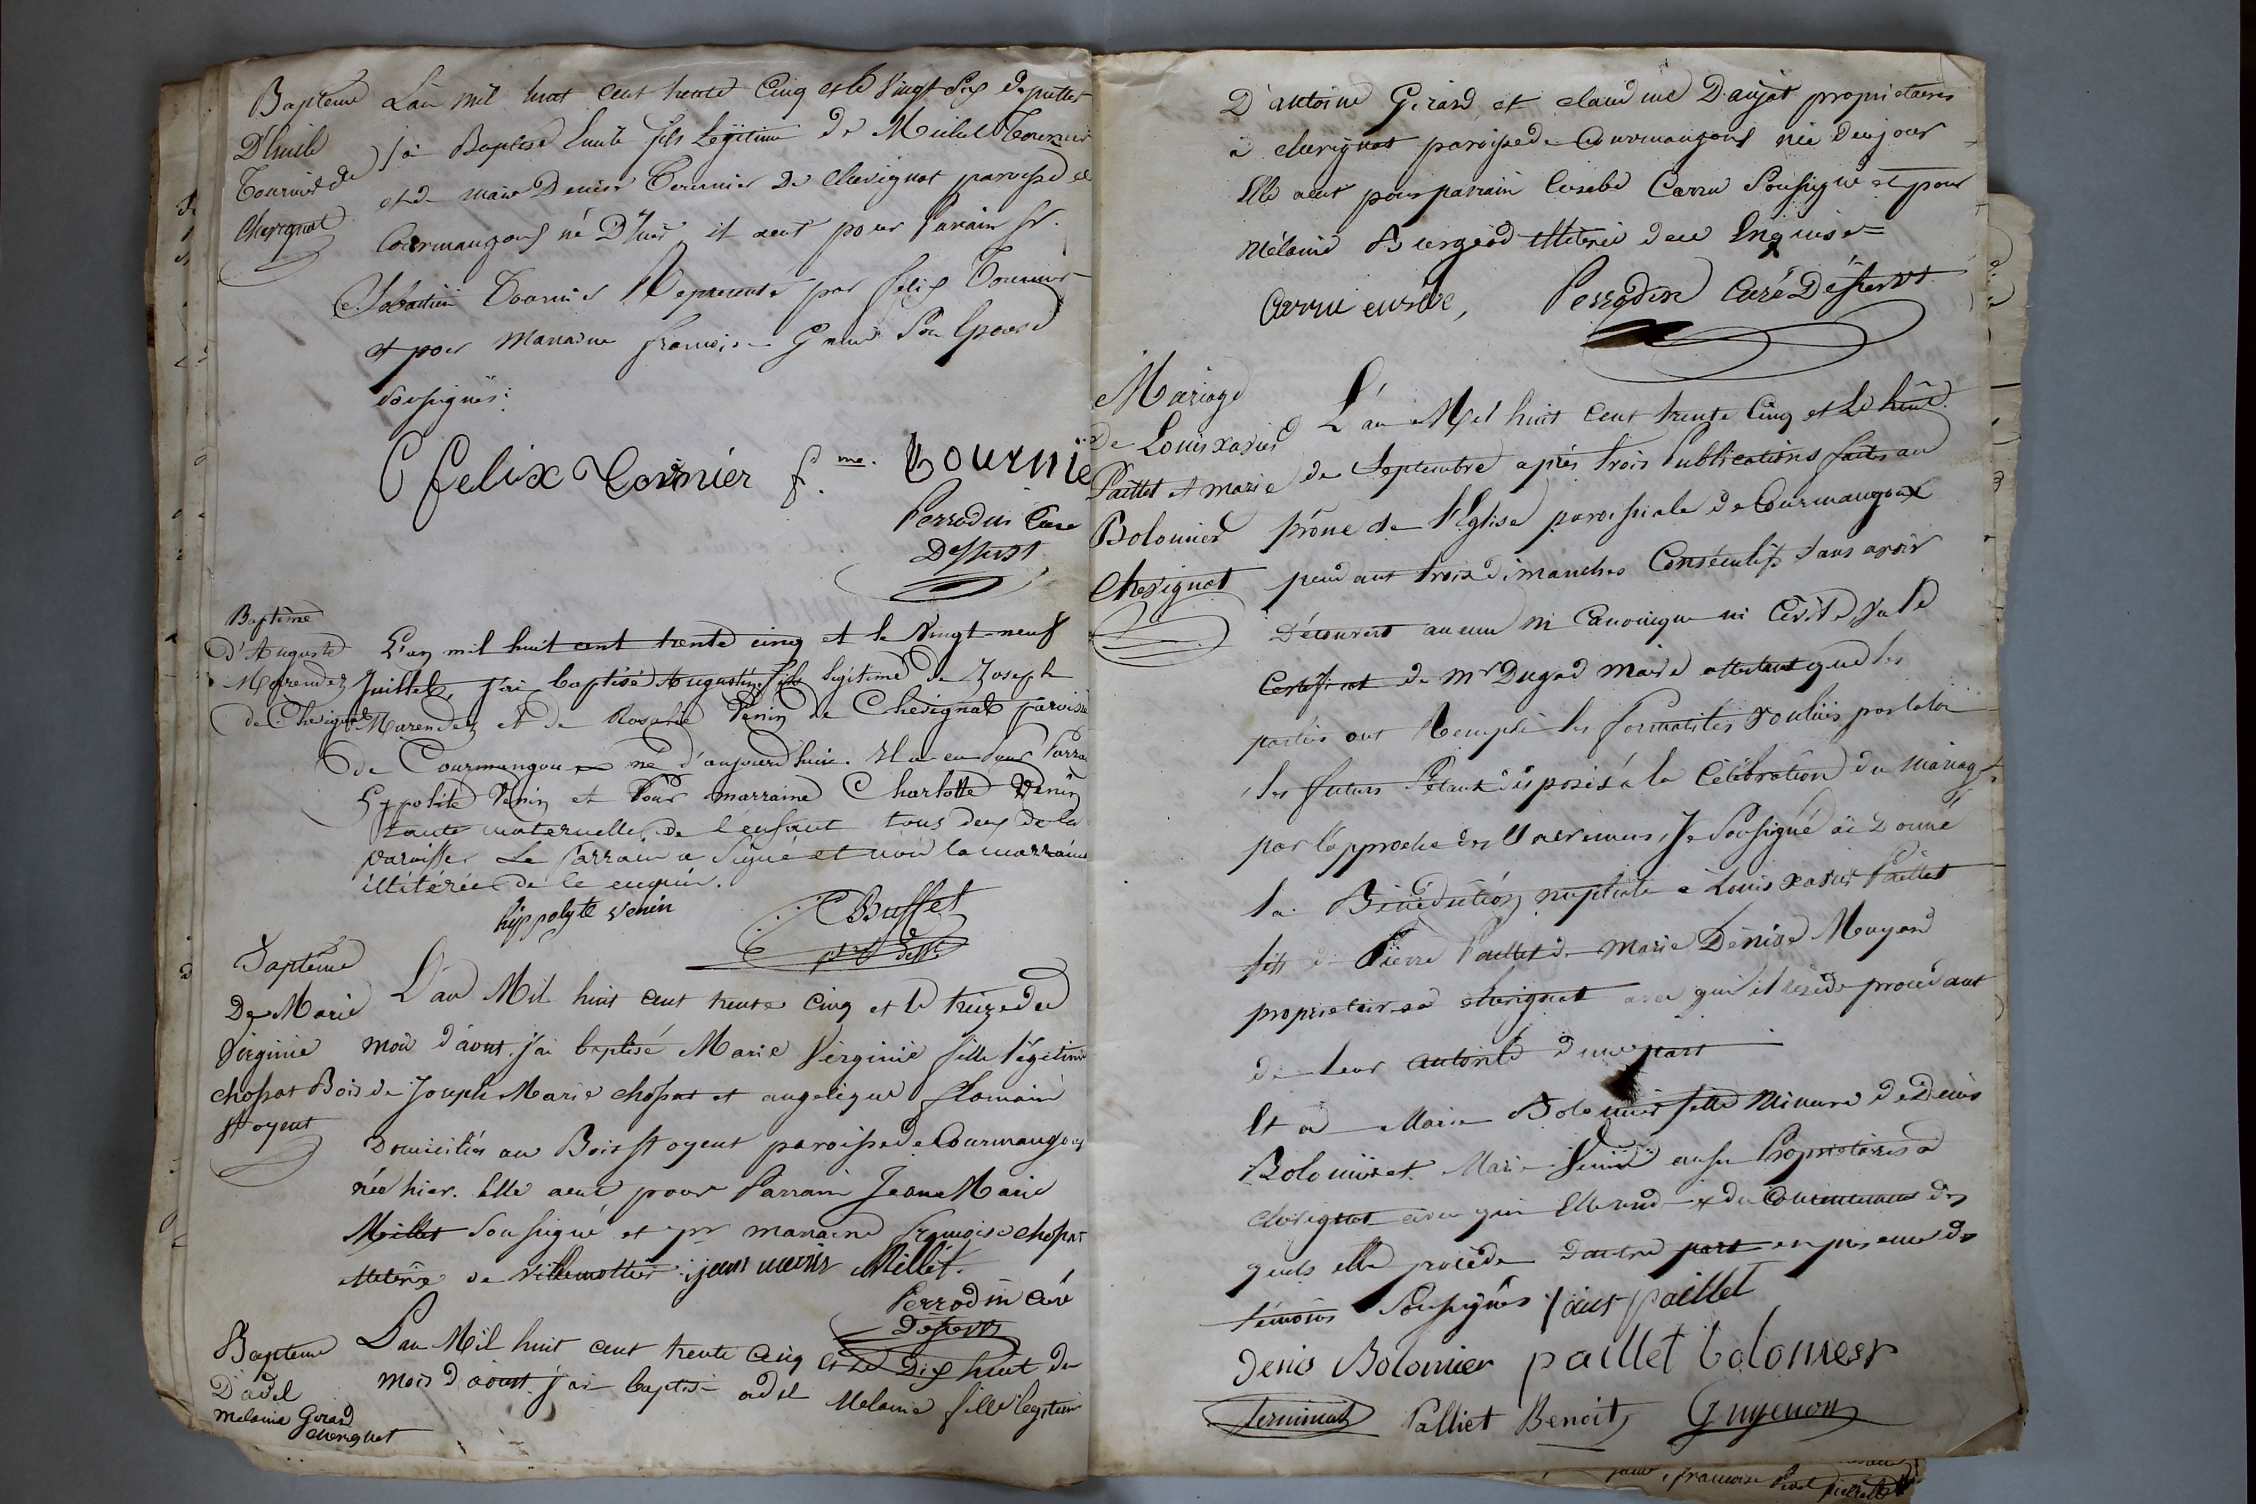 Baptême
D'Emile
Tournier de
Chevignat
L'an mil huit cent trente Cinq et le Vingt Six de juillet
j'ai Baptisé Emile fils Légitime de Michel Tournier
et de marie Denise Tournier de Chevignat paroisse de
Courmangoux né D'hier il aeut pour Parain Sr.
Sébastien Tournier Représenté par felix Tournier
et pour Maraine françoise Son Epouse
Sousignés.
felix Tornier f. me. Tournie
Perrodin Curé
Desservt
Baptême
d'Auguste
Marendez
de Chevignat
L'an mil huit cent trente cinq et le Vingt-neuf
Juillet, j'ai baptisé Augustin fils légitime de Joseph
Marendez et de Rosalie Venin de Chevignat paroisse
de Courmangoux né d'aujourd'huie. Il a eu pour Parra
Eyppolite Venin et Pour marraine Charlotte Venin
tante maternelle de l'enfant tous deux de la
paroisse. Le Parrain a Signé et non la marraine
illitérée de le enquis.
hippolyte venin Buffet
ptre dess.
Baptême
De Marie
Virginie
chossat Bois
St oyent
L'an Mil huit cent trente Cinq et le treize du
mois d'aout j'ai baptisé Marie Virginie fille légitime
de Joseph Marie chossat et angelique flamain
Domiciliés au Bois St oyent paroisse de Courmangoux
née hier. Elle aeut pour Parrain Jean Marie
Millet Sousigné et pr maraine françoise chossat
illeterée de villemottier jean marie Millet.
Perrodin Curé
Desservt
Bapteme
D'adel
melanie Girard
chevignat
L'an Mil huit cent trente Cinq et le Dix huit du
mois d'aoust j'ai baptisé adel Melanie fille legitime
D'antoine Girard et claudine Daujat proprietaires
à chevignat paroisse de Courmangoux née du jour
Elle aeut pour parain Eusebe Carru Sousigné et pour
Mélanie Burgiod illiterée de ce Enquise
Carru eusèbe, Perrodin Curé Desservt
Mariage
de Louis xavier
Paillet et marie
Bolomier
Chevignat
L'an Mil huit Cent trente Cinq et le huit
de Septembre après trois Publications faites au
prône de l'Eglise paroissiale de Courmangoux
pendant trois dimanches Consécutifs Sans avoir
Découvert aucun ni Canonique ni Civil, Vu le
Certificat de mr Dugad Maire attestant que les
parties ont Remplie les formalités voulües par la loi
les futurs Etant disposés à la Célébration du mariage
par l'approche des Sacremens, Je Sousigné ai Donné
la Bénédiction nuptiale à Louis xavier Paillet
fils de Pierre Paillet de Marie Denise Moyard
proprietaires à chevignat avec qui il réside procédant
de leur autorité d'une part
Et à Marie Bolomier fille Mineure de Denis
Bolomier et Marie aussi Proprietaires à
chevignat avec qui Elle réside et du Consentement des
quels elle procède D'autre part en présence des
témoins Sousignés paillet
denis Bolomier paillet bolomier
terminal Palliet Benoit Guyenon